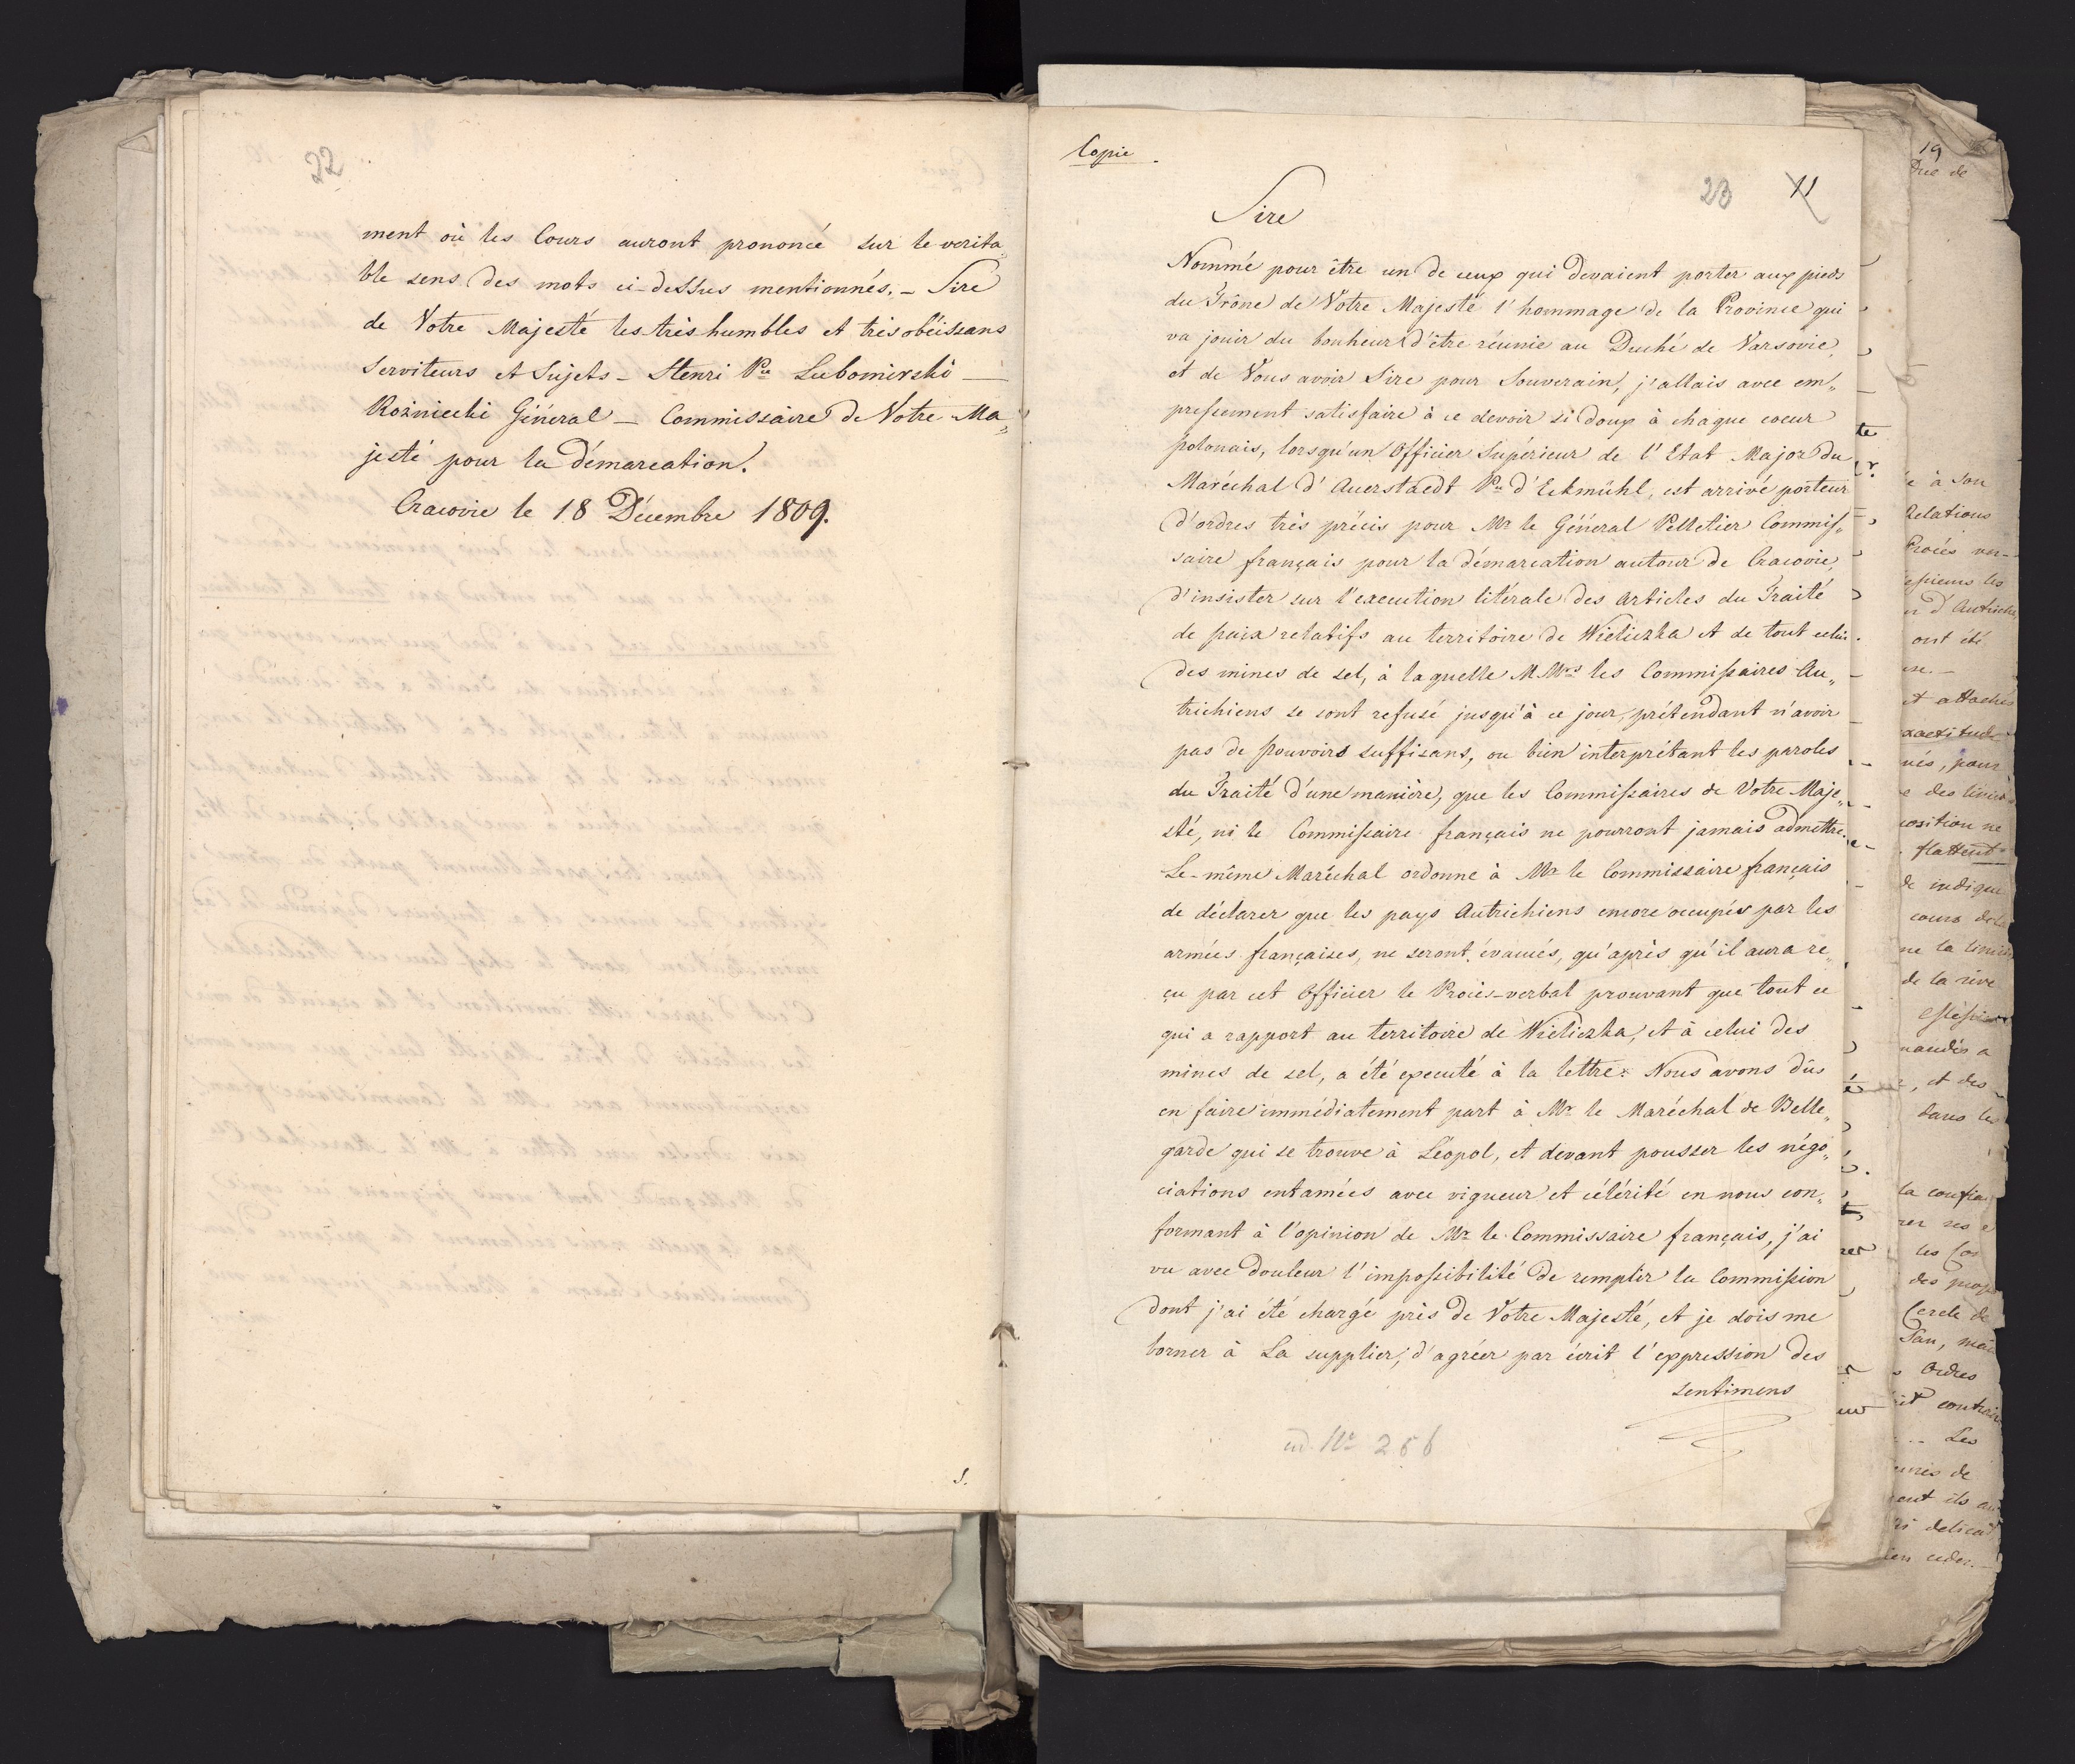 22
ment où les Cours auront prononcé sur le verita„
ble sens des mots ci-dessus mentionnés. – Sire
de Votre Majesté les très humbles et très obéissans
Serviteurs et Sujets – Henri Pce Lubomirski —
Rożniecki Général – Commissaire de Votre Ma„
jesté pour la démarcation.
Cracovie le 18 Décembre 1809.
Copie
23 11
Sire
Nommé pour être un de ceux qui devaient porter aux pieds
du Trône de Votre Majesté l'hommage de la Province qui
va jouir du bonheur d'être réunie au Duché de Varsovie,
et de Vous avoir Sire pour Souverain, j'allais avec em„
pressement satisfaire à ce devoir si doux à chaque coeur
polonais, lorsqu'un Officier Supérieur de l'Etat Major du
Maréchal d'Auerstaedt Pce d'Eckmühl, est arrivé porteur
d'ordres très précis pour Mr le Général Pelletier Commis„
saire français pour la démarcation autour de Cracovie,
d'insister sur l'execution litérale des Articles du Traité
de paix relatifs au territoire de Wieliczka et de tout celui
des mines de sel, à laquelle M.Mrs les Commissaires Au„
trichiens se sont refusé jusqu'à ce jour, prétendant n'avoir
pas de pouvoirs suffisans, ou bien interprétant les paroles
du Traité d'une manière, que les Commissaires de Votre Maje„
sté, ni le Commissaire français ne pourront jamais admettre.
Le-même Maréchal ordonne à Mr le Commissaire français
de déclarer que les pays Autrichiens encore occupés par les
armées françaises, ne seront évacués, qu'après qu'il aura re„
çu par cet Officier le Procès-verbal prouvant que tout ce
qui a rapport au territoire de Wieliczka, et à celui des
mines de sel, a été executé à la lettre. Nous avons dûs
en faire immédiatement part à Mr le Maréchal de Belle„
garde qui se trouve à Léopol, et devant pousser les négo„
ciations entamées avec vigueur et célérité en nous con„
formant à l'opinion de Mr le Commissaire français, j'ai
vu avec douleur l'impossibilité de remplir la Commission
dont j'ai été chargé près de Votre Majesté, et je dois me
borner à La supplier, d'agréer par écrit l'expression des
sentimens
ad. No 256
19
à Son
Relations
ont été
et attachés
pour
position ne
de indique
cours de
de la rive
, et des
dans les
la confia
des prop
Cercle de
San, mai
Ordres
Les